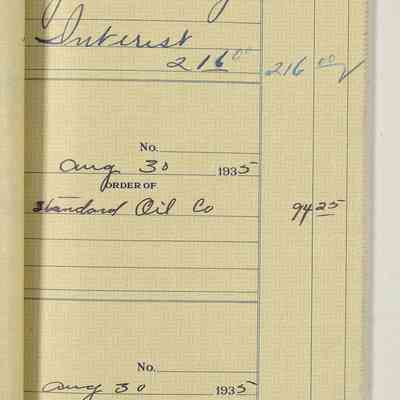 Interest
216 00 216 00
No.
Aug 30 1935
ORDER OF
Standard Oil Co 94 25
No.
Aug 30 1935